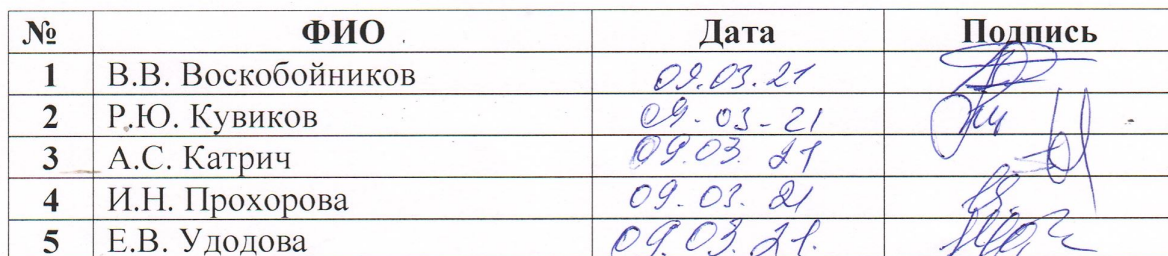 № ФИО Дата Подпись
1 В.В. Воскобойников 09.03.21
2 Р.Ю. Кувиков 09-03-21
3 А.С. Катрич 09.03.21
4 И.Н. Прохорова 09.03.21
5 Е.В. Удодова 09.03.21.